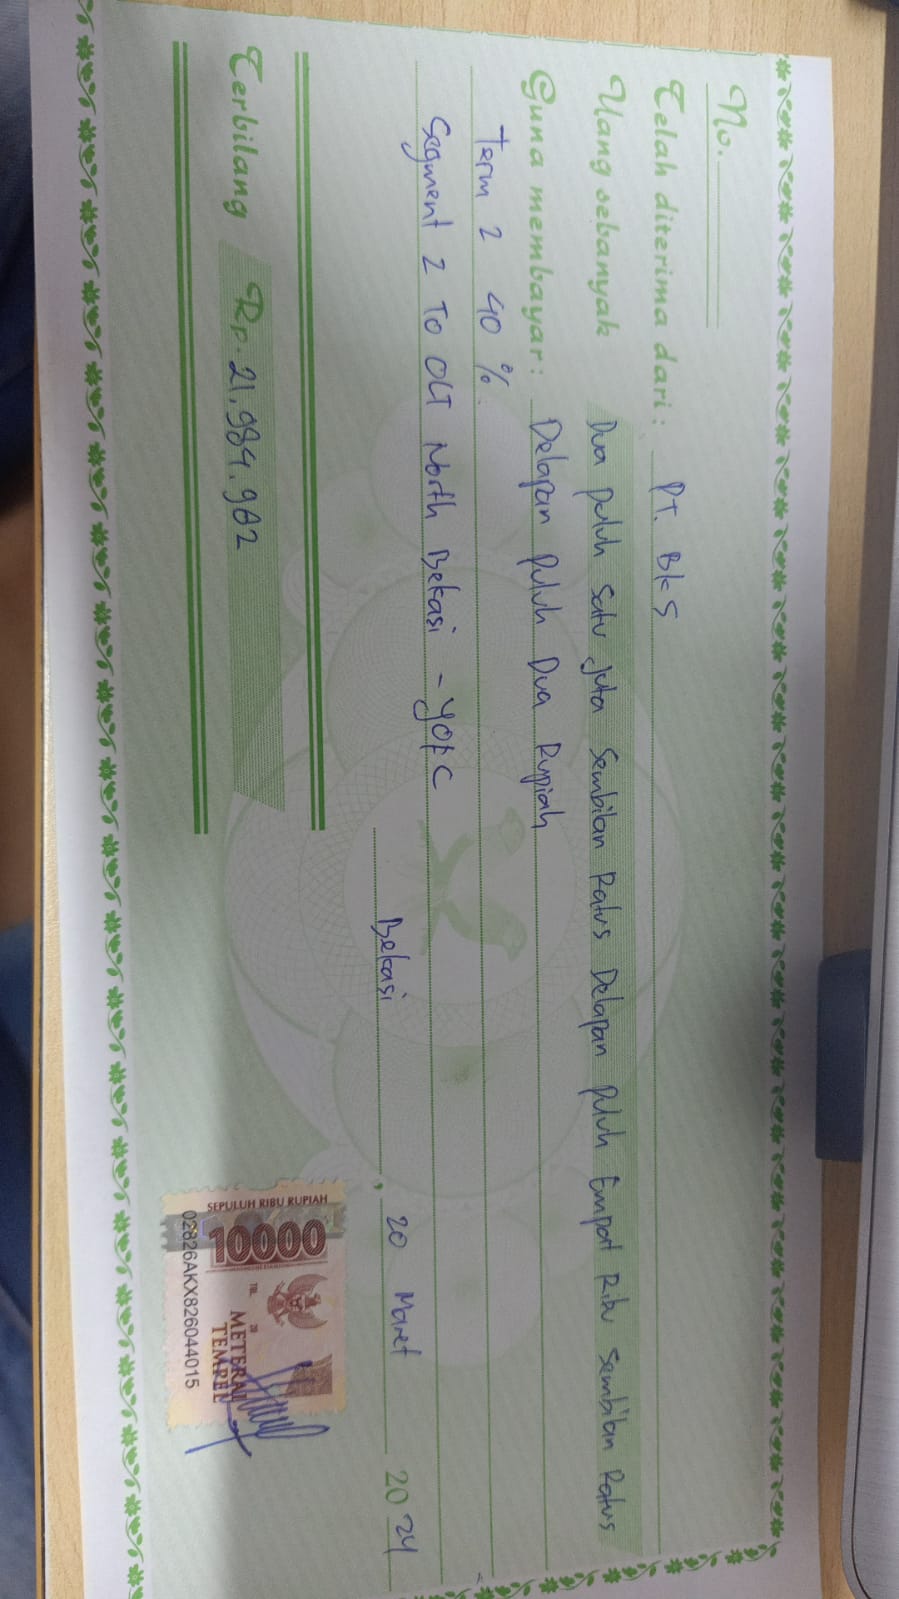 No.
Telah diterima dari : PT. BKS
Uang sebanyak Dua puluh satu juta Sembilan Ratus Delapan puluh Empat Ribu Sembilan Ratus
Guna membayar : Delapan puluh Dua Rupiah
Term 2 40 %
Segment 2 To OLT North Bekasi - YOFC
Bekasi , 20 Maret 2024
Terbilang Rp. 21.984.982
SEPULUH RIBU RUPIAH
10000
TGL. 20
METERAI
TEMPEL
02826AKX826044015